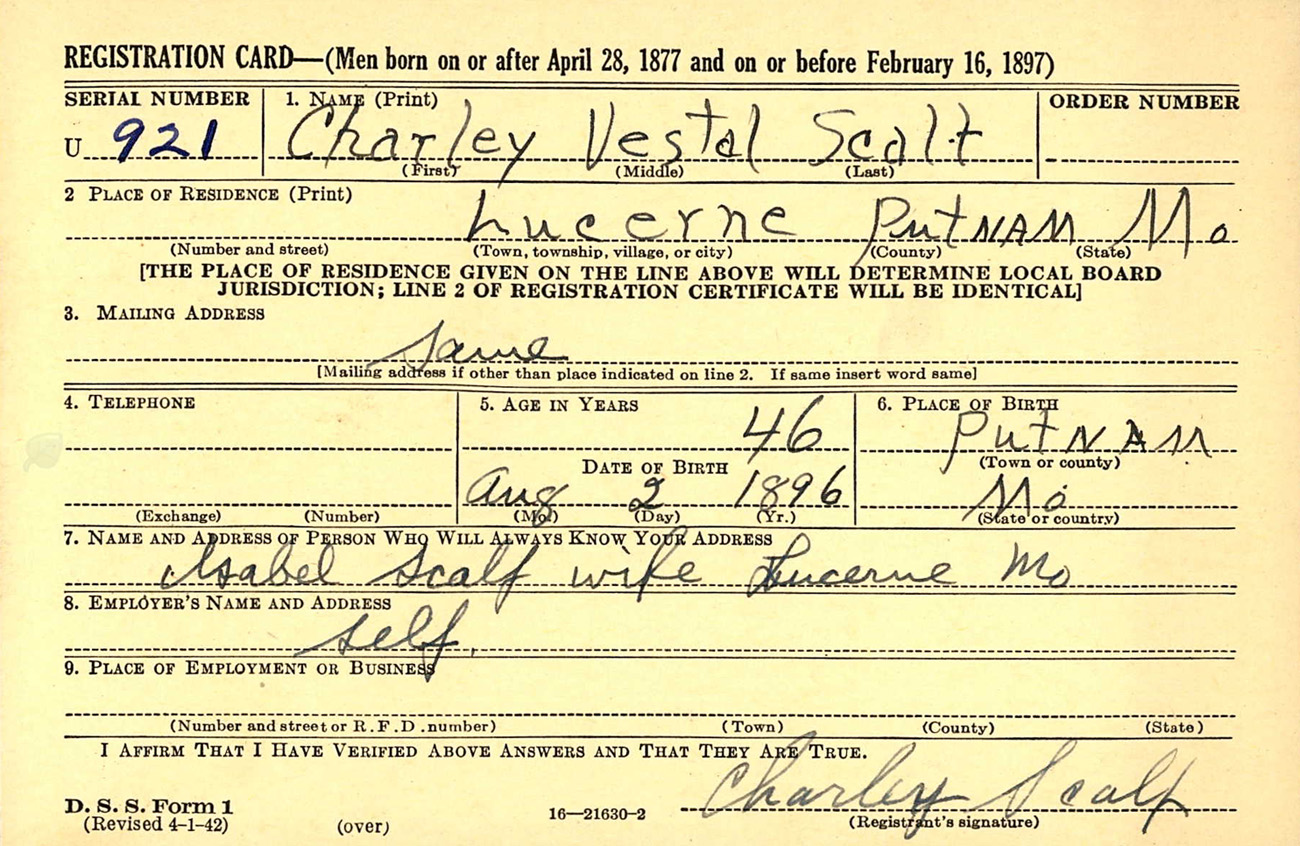 REGISTRATION CARD—(Men born on or after April 28, 1877 and on or before February 16, 1897)
SERIAL NUMBER 1. NAME (Print) ORDER NUMBER
U 921 Charley Vestal Scalf
(First) (Middle) (Last)
2 PLACE OF RESIDENCE (Print)
Lucerne PutNAM Mo
(Number and street) (Town, township, village, or city) (County) (State)
[THE PLACE OF RESIDENCE GIVEN ON THE LINE ABOVE WILL DETERMINE LOCAL BOARD
JURISDICTION; LINE 2 OF REGISTRATION CERTIFICATE WILL BE IDENTICAL]
3. MAILING ADDRESS
Same
[Mailing address if other than place indicated on line 2. If same insert word same]
4. TELEPHONE 5. AGE IN YEARS 6. PLACE OF BIRTH
46 PutNAM
DATE OF BIRTH (Town or county)
Aug 2 1896 Mo
(Exchange) (Number) (Mo.) (Day) (Yr.) (State or country)
7. NAME AND ADDRESS OF PERSON WHO WILL ALWAYS KNOW YOUR ADDRESS
Isabel Scalf wife Lucerne Mo
8. EMPLOYER'S NAME AND ADDRESS
self.
9. PLACE OF EMPLOYMENT OR BUSINESS
(Number and street or R. F. D. number) (Town) (County) (State)
I AFFIRM THAT I HAVE VERIFIED ABOVE ANSWERS AND THAT THEY ARE TRUE.
Charley Scalf
D. S. S. Form 1
(Revised 4-1-42) (over) 16—21630-2 (Registrant's signature)